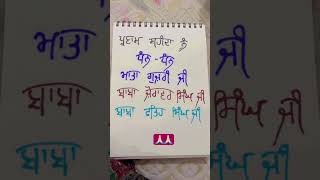 ਪ੍ਰਣਾਮ ਸ਼ਹੀਦਾਂ ਨੂੰ
ਧੰਨ ਧੰਨ
ਮਾਤਾ ਗੁਜਰੀ ਜੀ
ਬਾਬਾ ਜੋਰਾਵਰ ਸਿੰਘ ਜੀ
ਬਾਬਾ ਫਤਿਹ ਸਿੰਘ ਜੀ